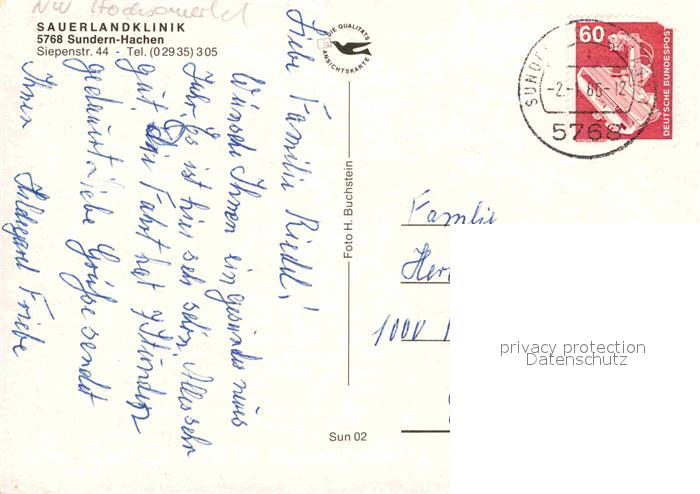 NW Hochsauerld
SAUERLANDKLINIK
5768 Sundern-Hachen
Siepenstr. 44 - Tel. (02935) 305
DIE QUALITÄTS
ANSICHTSKARTE
Liebe Familie Riedel!
Wünsche Ihnen ein gesundes neues
Jahr. Es ist hier sehr schön. Alles sehr
gut. Die Fahrt hat 9 Stunden
gedauert. Liebe Grüße sendet
Ihnen Hildegard Friebe
Foto H. Buchstein
Sun 02
60
DEUTSCHE BUNDESPOST
SUNDE
-2.-
86-12
5768
Familie
Her
1000
privacy protection
Datenschutz